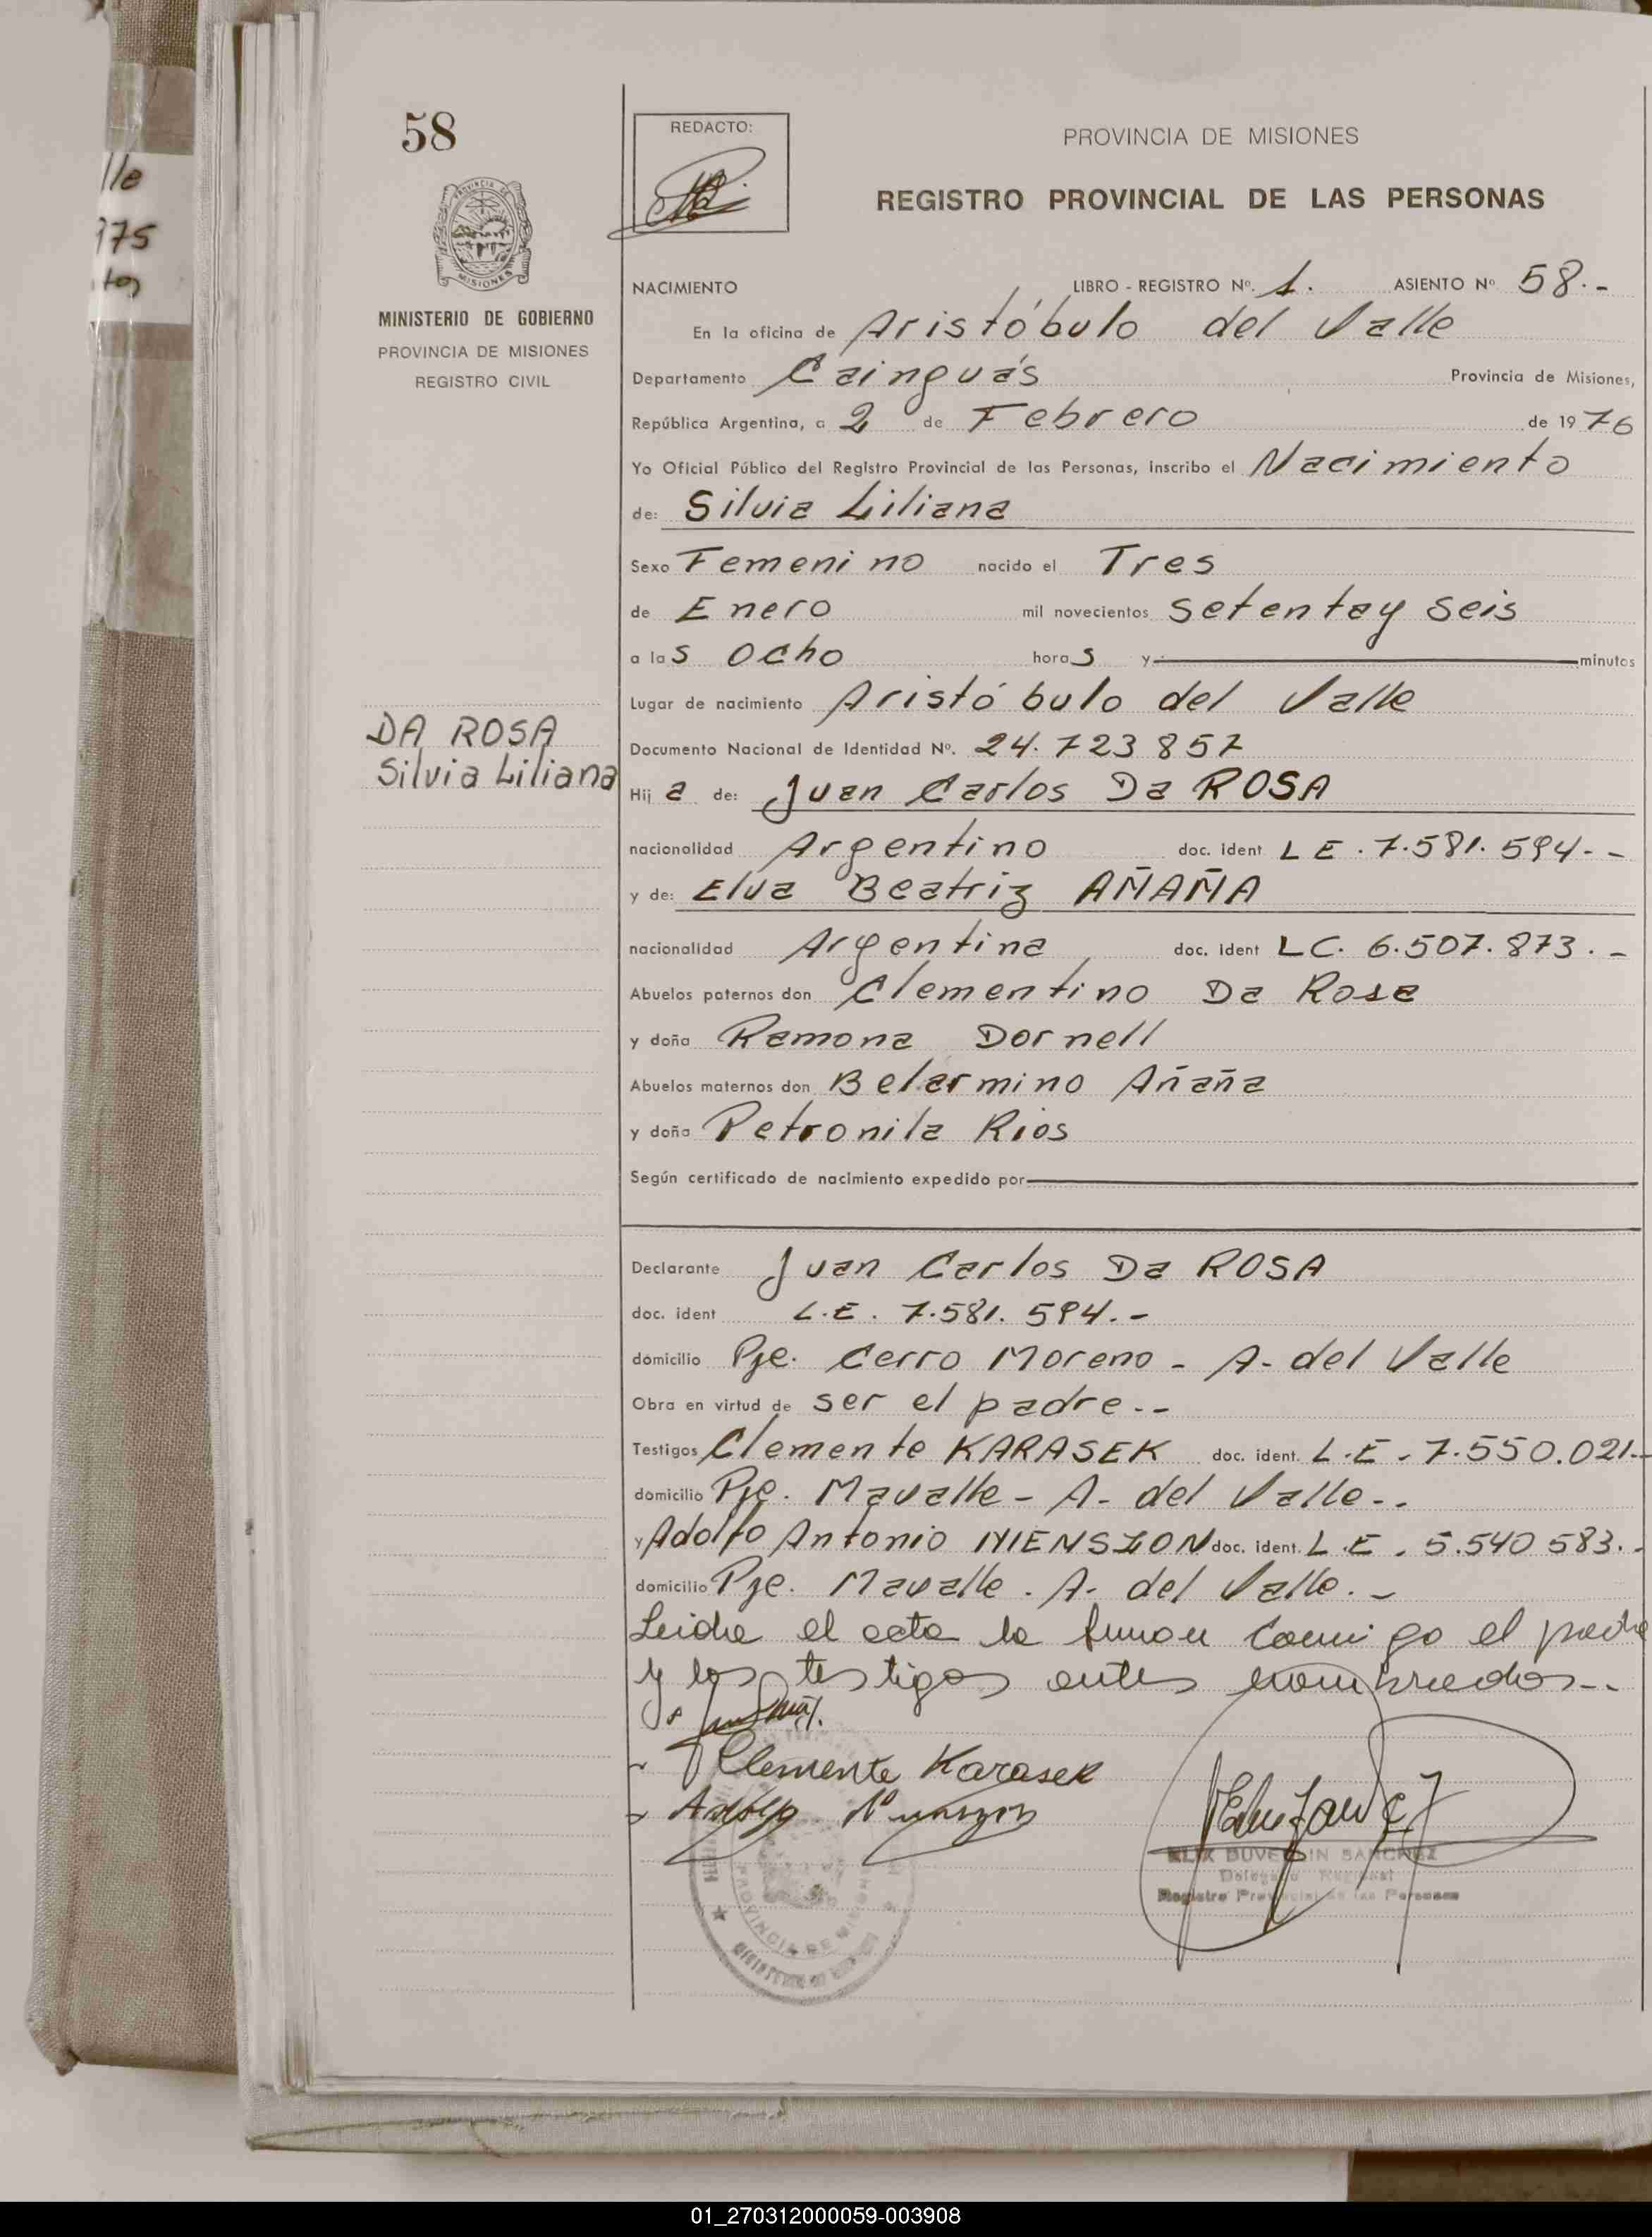 58
lle
975
tos
PROVINCIA DE
MISIONES
MINISTERIO DE GOBIERNO
PROVINCIA DE MISIONES
REGISTRO CIVIL
DA ROSA
Silvia Liliana
REDACTO:
PROVINCIA DE MISIONES
REGISTRO PROVINCIAL DE LAS PERSONAS
NACIMIENTO LIBRO - REGISTRO Nº. 1. ASIENTO Nº 58.-
En la oficina de Aristóbulo del Valle
Departamento Cainguás Provincia de Misiones,
República Argentina, a 2 de Febrero de 1976
Yo Oficial Público del Registro Provincial de las Personas, inscribo el Nacimiento
de: Silvia Liliana
Sexo Femenino nacido el Tres
de Enero mil novecientos setenta y seis
a las ocho horas y minutos
Lugar de nacimiento Aristóbulo del Valle
Documento Nacional de Identidad Nº. 24.723857
Hija de: Juan Carlos Da ROSA
nacionalidad Argentino doc. ident LE. 7.581.594.--
y de: Elva Beatriz AÑAÑA
nacionalidad Argentina doc. ident LC. 6.507.873.-
Abuelos paternos don Clementino Da Rosa
y doña Ramona Dornell
Abuelos maternos don Belarmino Añaña
y doña Petronila Rios
Según certificado de nacimiento expedido por
Declarante Juan Carlos Da ROSA
doc. ident L.E. 7.581.594.-
domicilio Pje. Cerro Moreno - A. del Valle
Obra en virtud de ser el padre.--
Testigos Clemente KARASEK doc. ident. L.E. 7.550.021.-
domicilio Pje. Mavalle - A. del Valle.-
y Adolfo Antonio doc. ident. L.E. 5.540583.-
domicilio Pje. Mavalle. A. del Valle.-
Leida el acta la firman conmigo el padre
y los testigos antes nombrados.-
Clemente Karasek
Adolfo
DUVE IN SANCHEZ
Delegado Regional
Registro Provincial de las Personas
PROVINCIA DE MISIONES
01_270312000059-003908